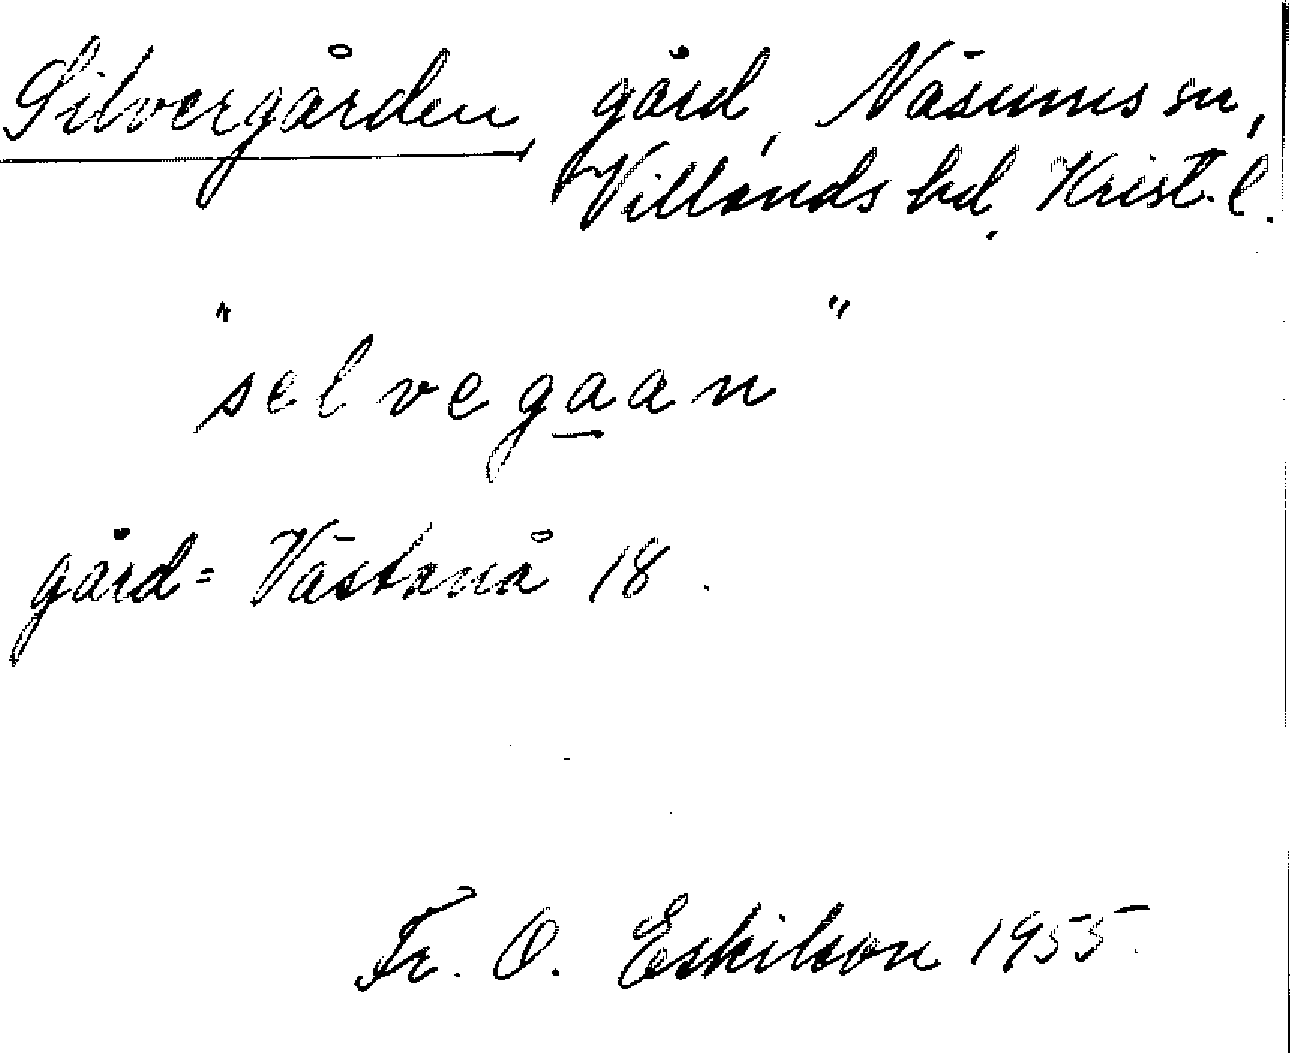 Silvergården, gård, Näsums sn,
Villands hd. Krist. l.
"selvegaan"
gård = Västanå 18.
Fr. O. Eskilson 1955.